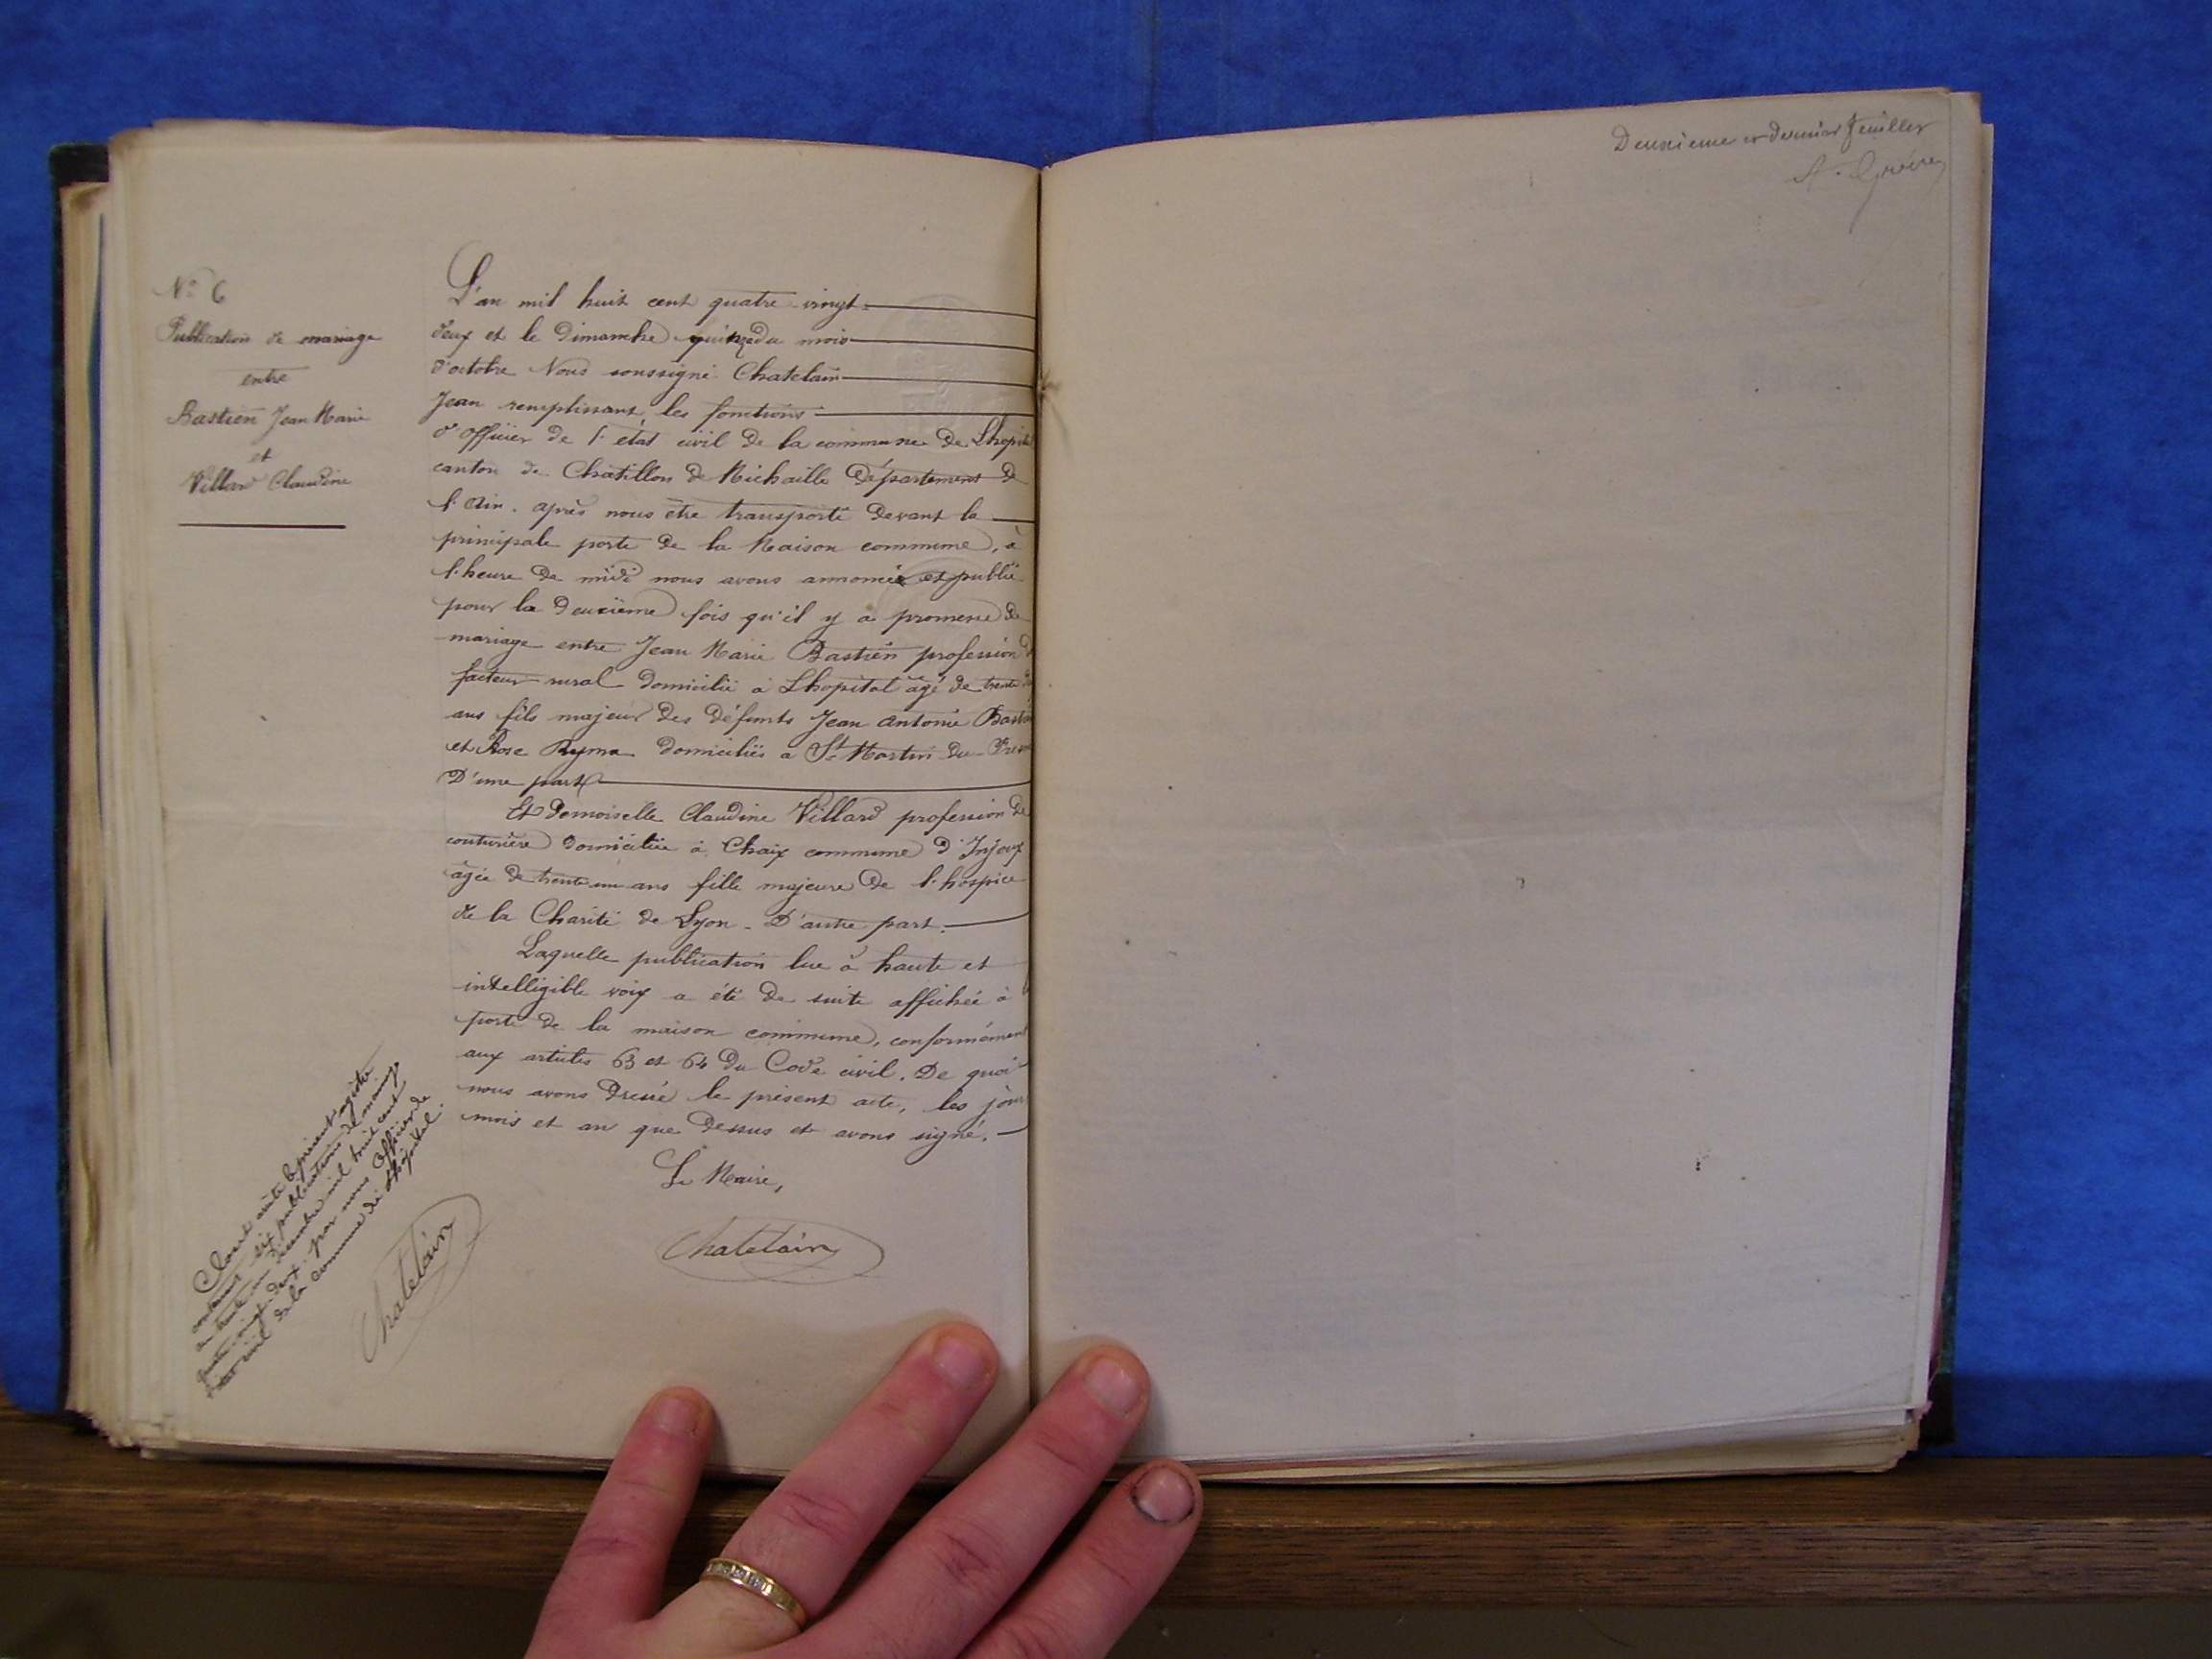 Deuxième et dernier feuillet
N° 6
Publication de mariage
entre
Bastien Jean Marie
et
Villard Claudine
L'an mil huit cent quatre vingt
deux et le dimanche quinze du mois
d'octobre Nous soussigné Chatelain
Jean remplissant les fonctions
d'officier de l'état civil de la commune de Lhopital
canton de Chatillon de Michaille département de
l'Ain. après nous être transporté devant la
principale porte de la Maison commune, à
l'heure de midi nous avons annoncé et publié
pour la deuxième fois qu'il y a promesse de
mariage entre Jean Marie Bastien profession de
facteur rural domicilié à Lhopital âgé de trente
ans fils majeur des défunts Jean Antoine Bastien
et Rose domiciliés à St Martin du Fresne
D'une part
Et Demoiselle Claudine Villard profession de
couturière domiciliée à Chaix commune d'Injoux
âgée de trente un ans fille majeure de l'hospice
de la Charité de Lyon - D'autre part.
Laquelle publication lue à haute et
intelligible voix a été de suite affichée à
porte de la maison commune, conformément
aux articles 63 et 64 du Code civil. De quoi
nous avons dressé le présent acte, les jour
mois et an que dessus et avons signé.
Le Maire,
Chatelain
Clos et arrêté le présent registre
contenant six publications de mariage
le trente un décembre mil huit cent
quatre vingt deux par nous Officier de
l'état civil de la commune de Lhôpital.
Chatelain